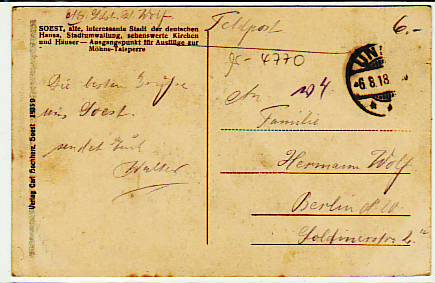 Wolf
SOEST, alte, interessante Stadt der deutschen
Hansa, Stadtumwallung, sehenswerte Kirchen
und Häuser — Ausgangspunkt für Ausflüge zur
Möhne-Talsperre
Die besten Grüße
aus Soest.
sendet Euch
Walter
Verlag Carl Hochherz, Soest
Feldpost
6.-
4770
UN
-6.8.18
An
Familie
Hermann Wolf
Berlin N.W.
Soldinerstr. 2